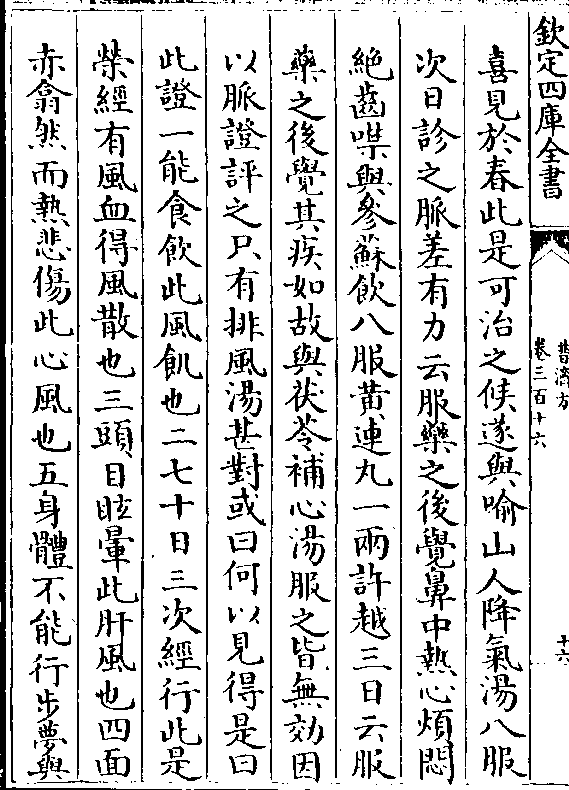 欽定四庫全書
普濟方
卷三百十六
十六
喜見於春此是可治之候遂與喻山人降氣湯八服
次日診之脈差有力云服藥之後覺鼻中熱心煩悶
絶齒噤與參蘇飲八服黄連丸一兩許越三日云服
藥之後覺其疾如故與茯苓補心湯服之皆無効因
以脈證評之只有排風湯甚對或曰何以見得是曰
此證一能食飲此風飢也二七十日三次經行此是
榮經有風血得風散也三頭目眩暈此肝風也四面
赤翕然而熱悲傷此心風也五身體不能行步夢與